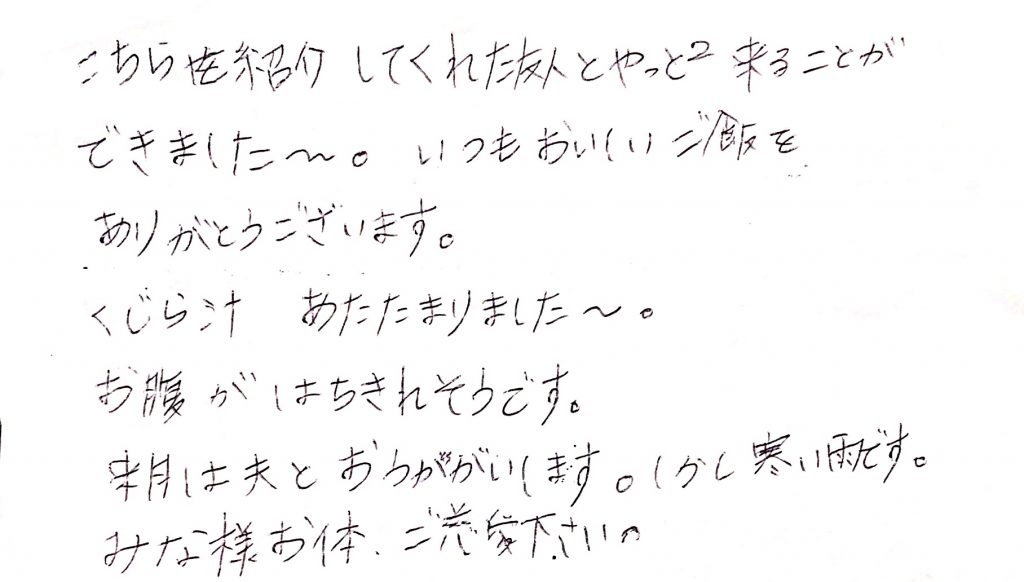 こちらを紹介してくれた友人とやっと2来ることが
できました〜。いつもおいしいご飯を
ありがとうございます。
くじら汁 あたたまりました〜。
お腹がはちきれそうです。
来月は夫とおうががいします。しかし寒い雨です。
みな様お体、ご慈愛下さい。